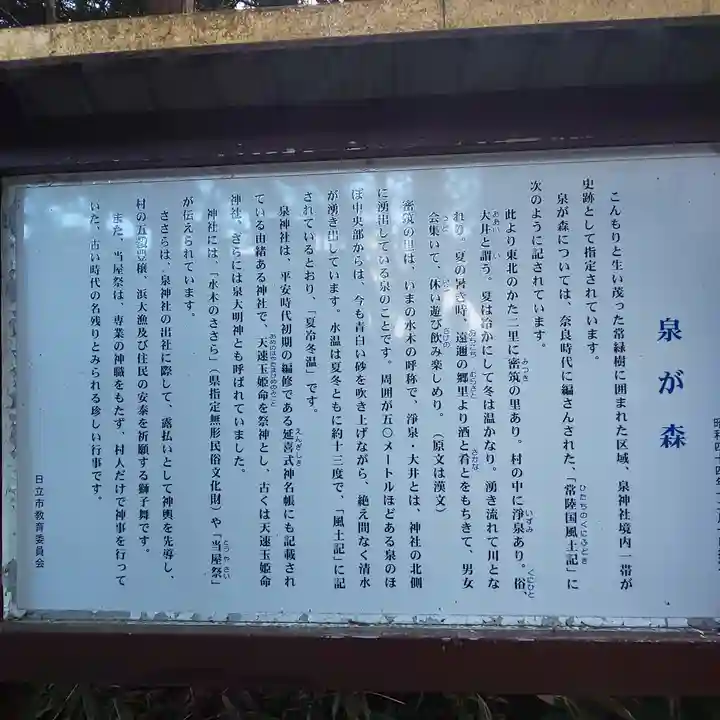 泉が森
こんもりと生い茂った常緑樹に囲まれた区域、泉神社境内一帯が
史跡として指定されています。
泉が森については、奈良時代に編さんされた、「常陸国風土記」に
ひたちのくにふどき
次のように記されています。
此より東北のかた二里に密筑の里あり。村の中に淨泉あり。俗、
みつき
いずみ
くにひと
大井と謂う。夏は冷かにして冬は温かなり。湧き流れて川とな
おおい
い
れり。夏の暑き時、遠邇の郷里より酒と肴とをもちきて、男女
おちこち
むらさと
さかな
会集いて、休い遊び飲み楽しめり。（原文は漢文）
つど
密筑の里は、いまの水木の呼称で、淨泉・大井とは、神社の北側
に湧出している泉のことです。周囲が五〇メートルほどある泉のほ
ぼ中央部からは、今も青白い砂を吹き上げながら、絶え間なく清水
が湧き出しています。水温は夏冬ともに約十三度で、「風土記」に記
されているとおり、「夏冷冬温」です。
泉神社は、平安時代初期の編修である延喜式神名帳にも記載され
えんぎしき
ている由緒ある神社で、天速玉姫命を祭神とし、古くは天速玉姫命
あめのはやたまひめのみこと
神社、さらには泉大明神とも呼ばれていました。
神社には、「水木のささら」（県指定無形民俗文化財）や「当屋祭」
とうやさい
が伝えられています。
ささらは、泉神社の出社に際して、露払いとして神輿を先導し、
村の五穀豊穣、浜大漁及び住民の安泰を祈願する獅子舞です。
また、当屋祭は、専業の神職をもたず、村人だけで神事を行って
いた、古い時代の名残りとみられる珍しい行事です。
日立市教育委員会